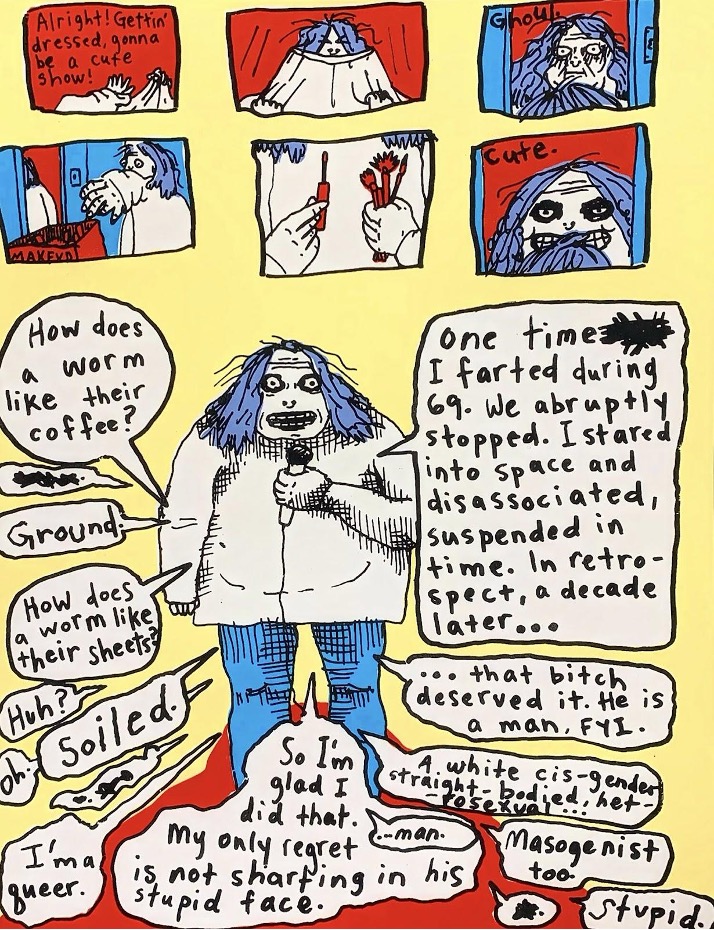 Alright! Gettin'
dressed, gonna
be a cute
show!
Ghoul.
MAKEUP
cute.
How does
a worm
like their
coffee?
Ground.
How does
a worm like
their sheets?
Huh?
Soiled.
oh.
I'm a
queer.
One time
I farted during
69. We abruptly
stopped. I stared
into space and
disassociated,
suspended in
time. In retro-
spect, a decade
later...
... that bitch
deserved it. He is
a man, FYI.
A white cis-gender
straight-bodied, het-
-rosexual...
...man.
Masogenist
too.
Stupid.
So I'm
glad I
did that.
My only regret
is not sharting in his
stupid face.